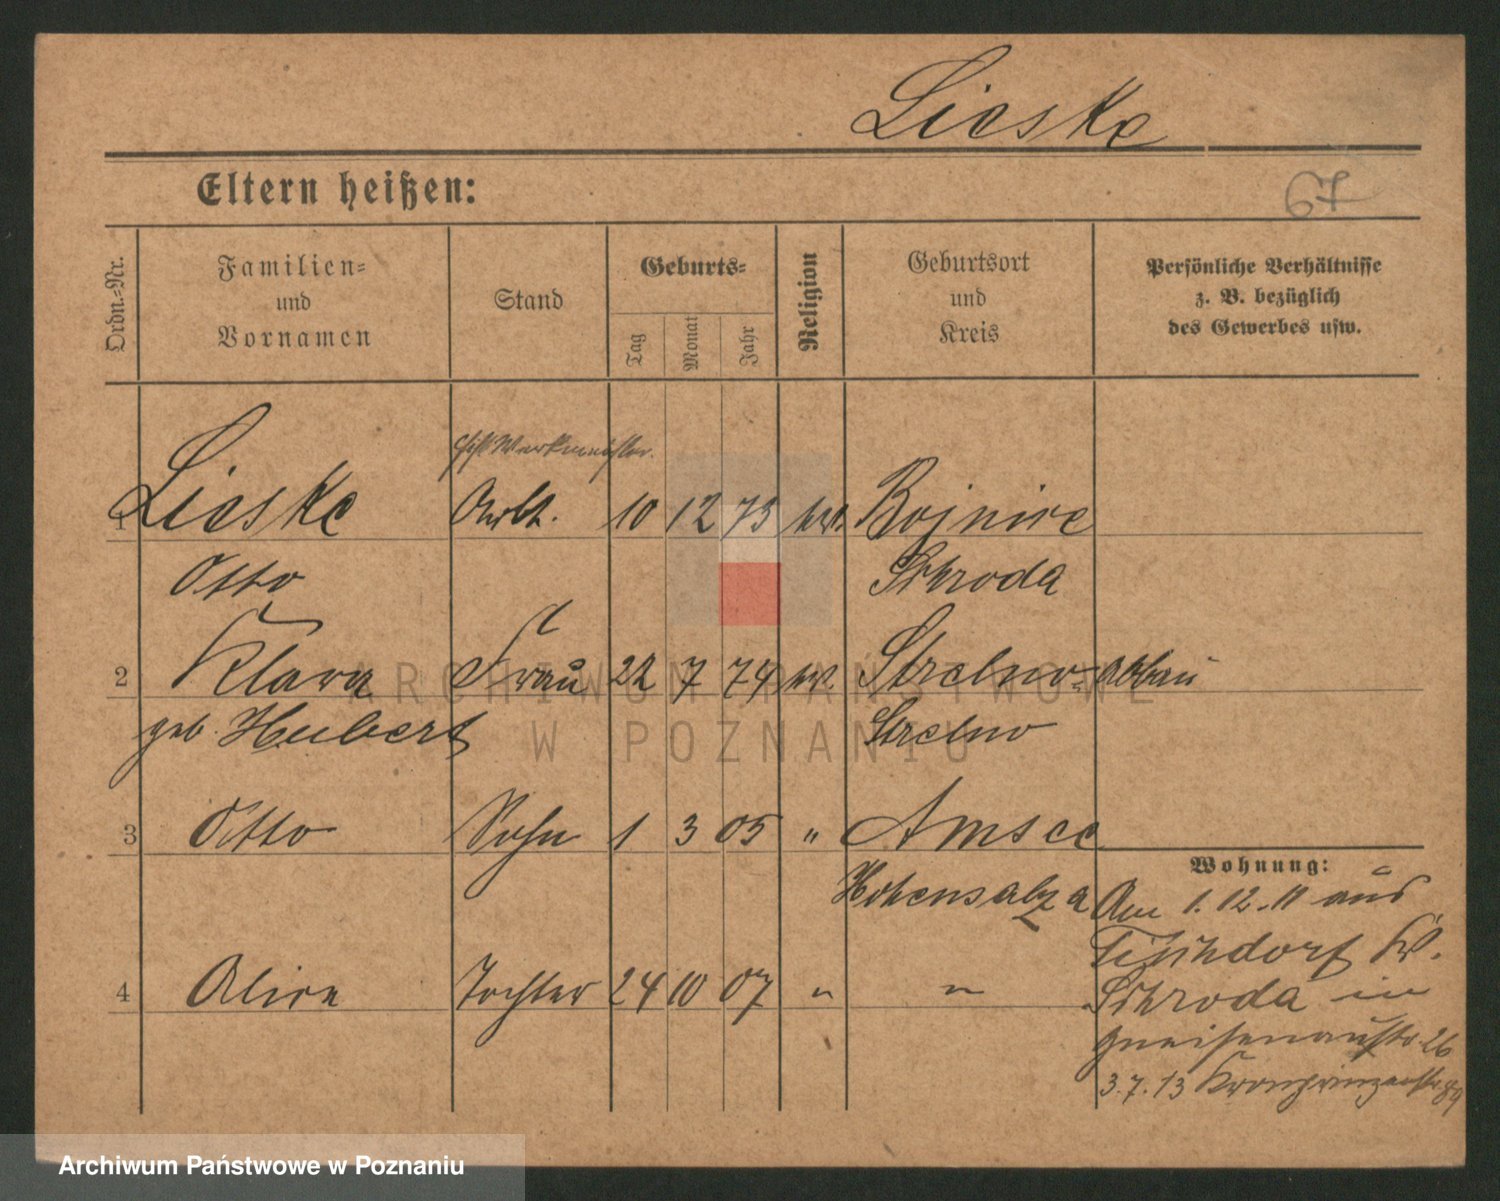 Lieske
Eltern heißen:
67
Ordn.-Nr.
Familien-
und
Vornamen
Stand
Geburts-
Tag
Monat
Jahr
Religion
Geburtsort
und
Kreis
Persönliche Verhältnisse
z. B. bezüglich
des Gewerbes usw.
Werkmeister.
1 Lieske Arbt. 10 12 73 Bojnice
Otto Schroda
2 Klara Frau 22 7 74 Strelno- Abbau
geb. Hubert Strelno
3 Otto Sohn 1 3 05 " Amsee
Hohensalza
4 Alice Tochter 24 10 07 " "
Wohnung:
Am 1.12.11 aus
Tischdorf Kr.
Schroda in
Gneisenaustr. 26
3.7.13 Kronprinzenstr. 89
ARCHIWUM PAŃSTWOWE
W POZNANIU
Archiwum Państwowe w Poznaniu